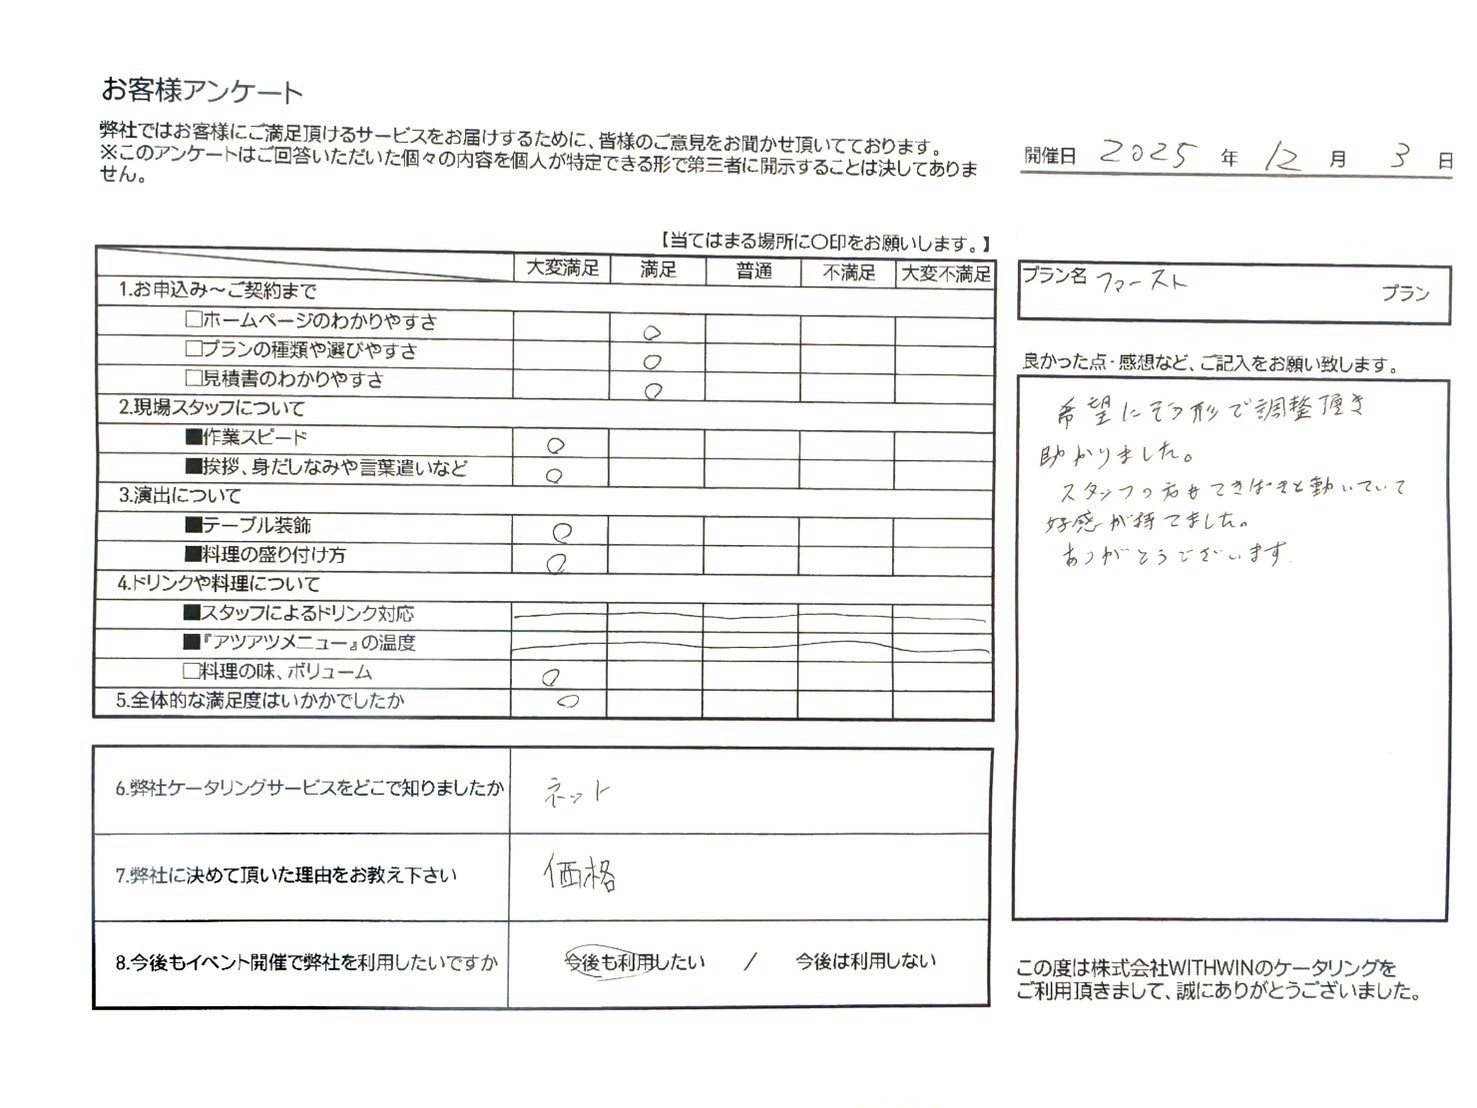 お客様アンケート
弊社ではお客様にご満足頂けるサービスをお届けするために、皆様のご意見をお聞かせ頂いております。
※このアンケートはご回答いただいた個々の内容を個人が特定できる形で第三者に開示することは決してありま
せん。
開催日 2025 年 12 月 3 日
【当てはまる場所に〇印をお願いします。】
大変満足 満足 普通 不満足 大変不満足
1.お申込み～ご契約まで
□ホームページのわかりやすさ ○
□プランの種類や選びやすさ ○
□見積書のわかりやすさ ○
2.現場スタッフについて
■作業スピード ○
■挨拶、身だしなみや言葉遣いなど ○
3.演出について
■テーブル装飾 ○
■料理の盛り付け方 ○
4.ドリンクや料理について
■スタッフによるドリンク対応
■『アツアツメニュー』の温度
□料理の味、ボリューム ○
5.全体的な満足度はいかかでしたか ○
6.弊社ケータリングサービスをどこで知りましたか ネット
7.弊社に決めて頂いた理由をお教え下さい 価格
8.今後もイベント開催で弊社を利用したいですか 今後も利用したい / 今後は利用しない
プラン名 ファースト プラン
良かった点・感想など、ご記入をお願い致します。
希望にそう形で調整頂き
助かりました。
スタッフの方もてきぱきと動いていて
好感が持てました。
ありがとうございます.
この度は株式会社WITHWINのケータリングを
ご利用頂きまして、誠にありがとうございました。